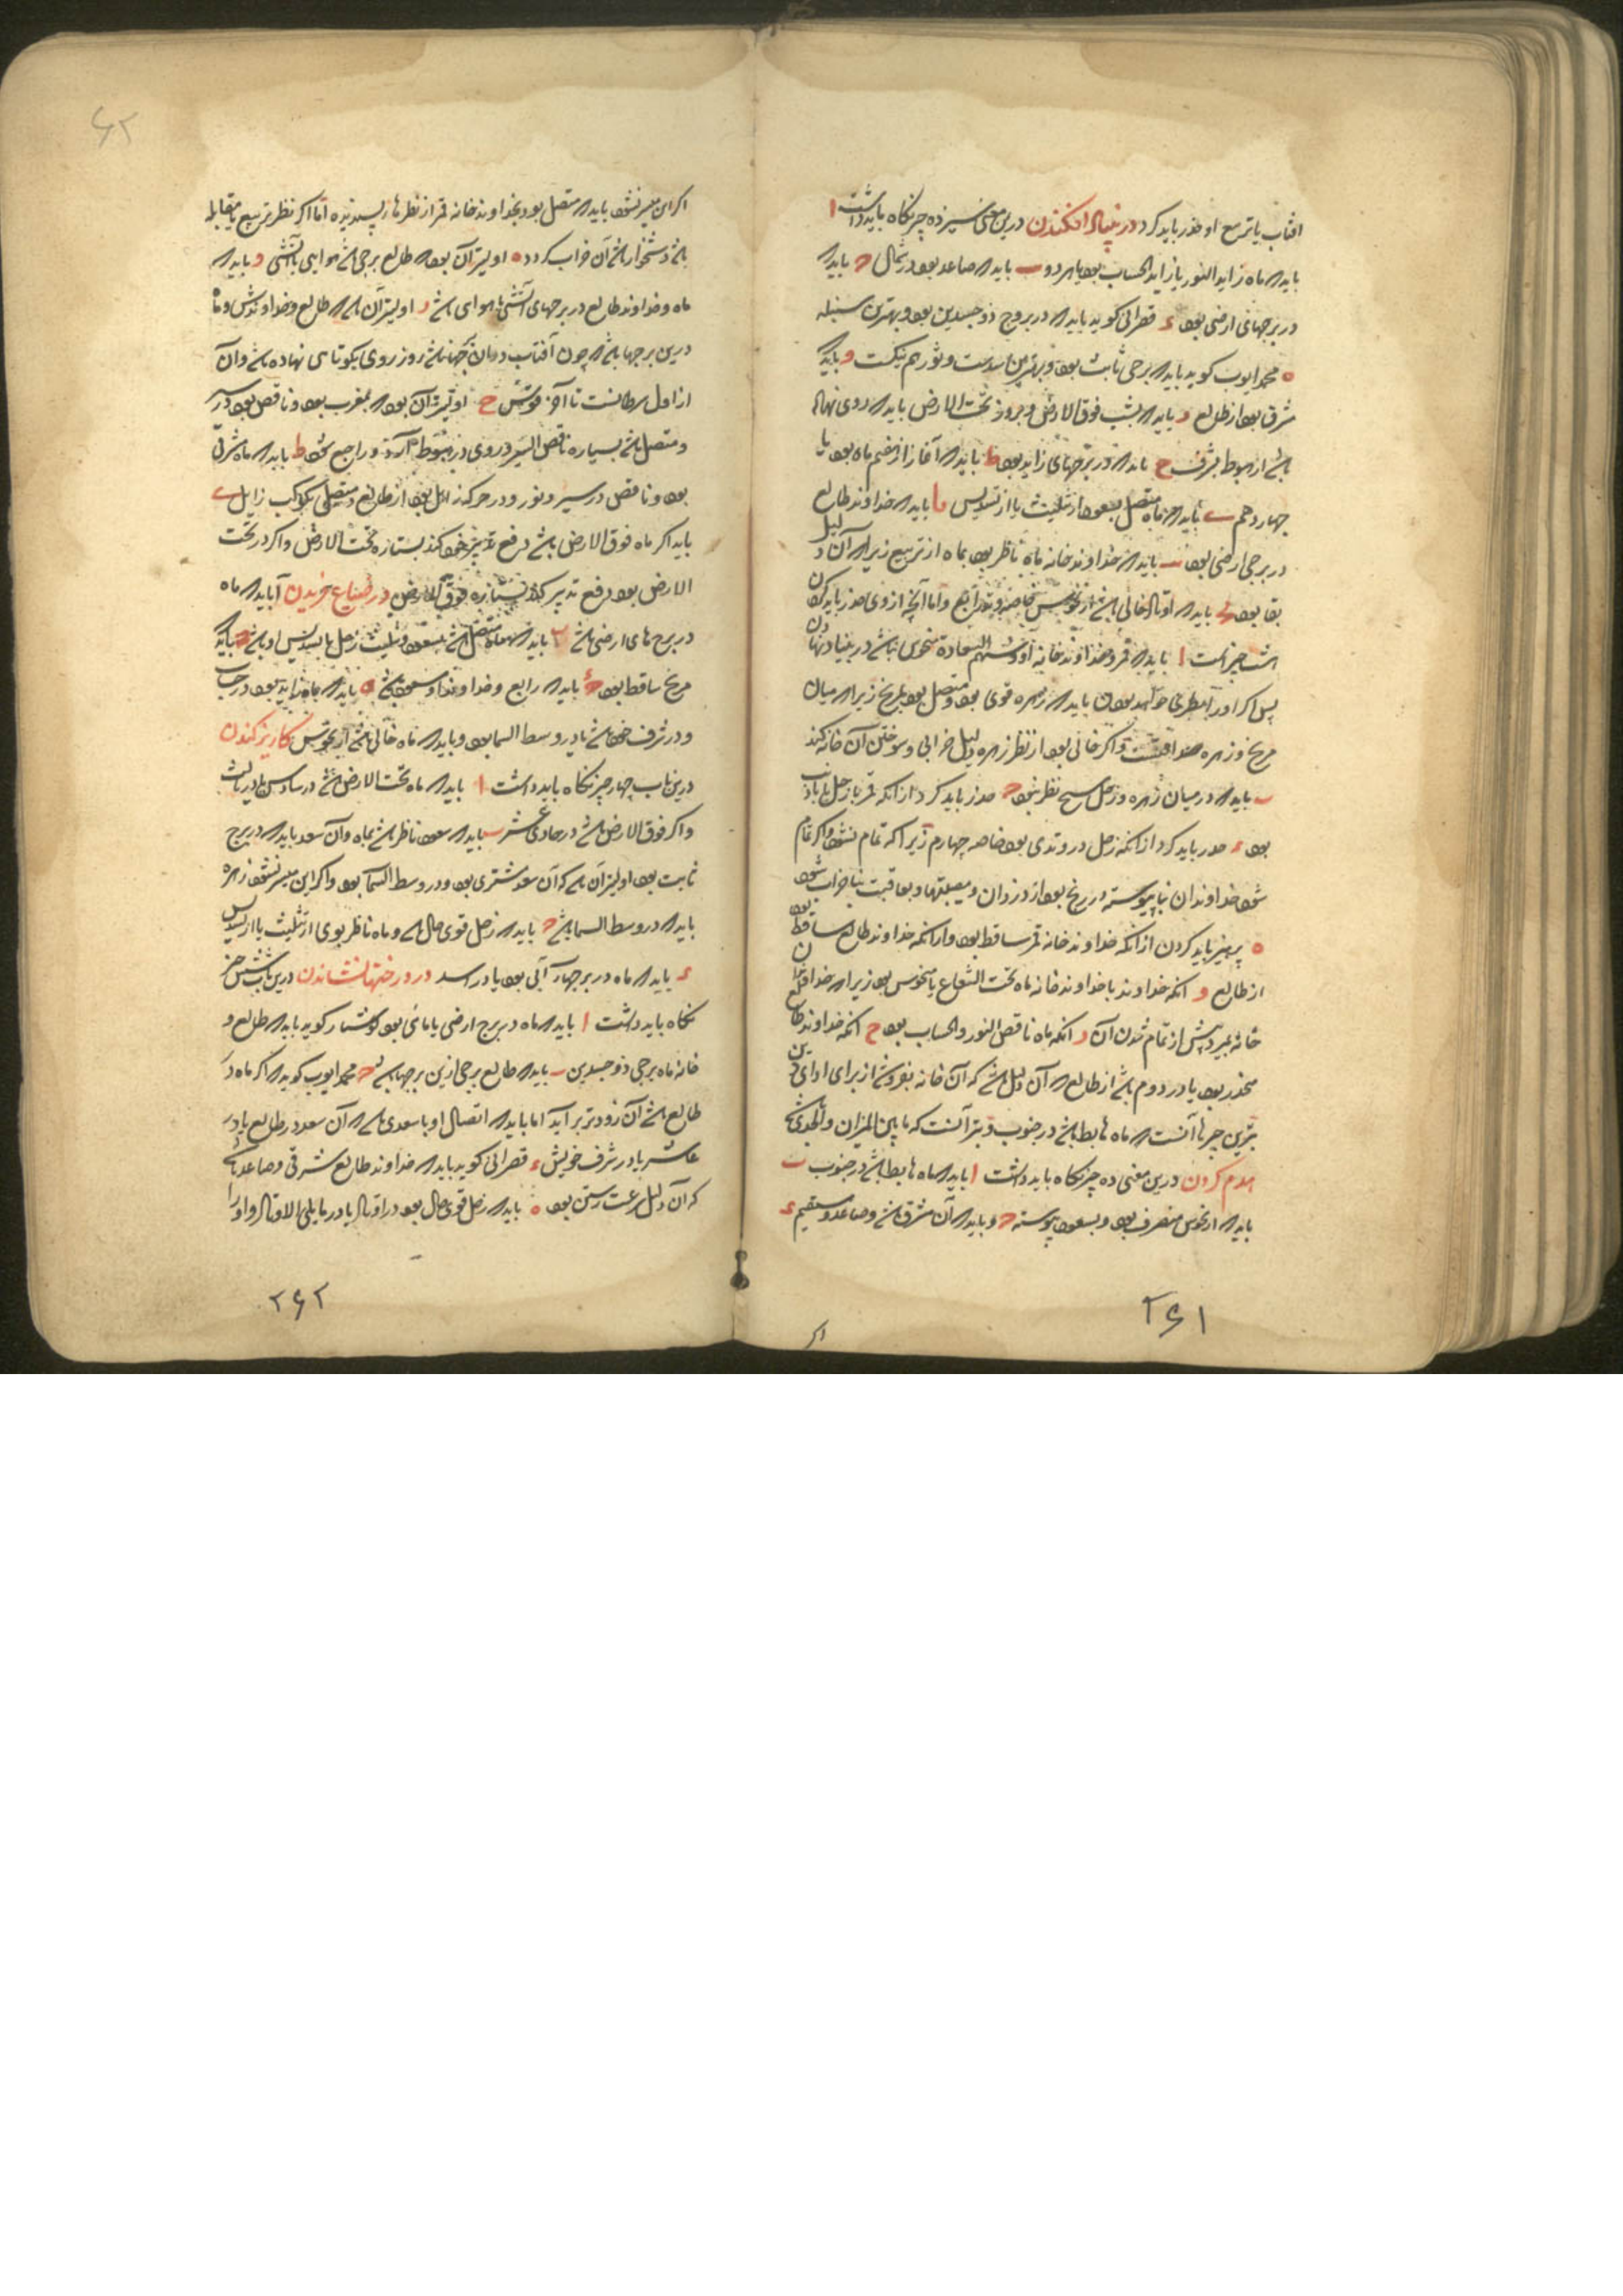 افتاب یا تربیع او حذر باید کرد در بنیاد افکندن درین معنی سیزده چیز نگاه باید داشت ا
باید که ماه زاید النور یا زاید الحساب بود یا هر دو ب باید که صاعد بود در شمال ج باید که
در برجهای ارضی بود د قصرانی گوید باید که در بروج ذو جسدین بود و بهترین سنبله
ه محمد ایوب گوید باید که برجی ثابت بود و بهترین اسدست و ثور هم نیکست و باید که
شرقی بود از طالع ر باید که بشب فوق الارض و بروز تحت الارض باید که روی نهاده
باشد از هبوط بشرف ح باید که در برجهای زاید بود ط باید که آغاز از هفتم ماه بود یا
چهاردهم ی باید که ماه متصل بسعود از تثلیث یا از تسدیس یا باید که خداوند طالع
در برجی ارضی بود یب باید که خداوند خانه ماه ناظر بود بماه از تربیع زیرا که آن دلیل
بقا بود یج باید که اوتاد خالی باشد از نحوس خاصه وتد رابع و اما آنچه از وی حذر باید کردن
هشت چیز است ا باید که قمر و خداوند خانه او و سهم السعادة منحوس نباشد در بنیاد نهادن
پس اگر اورا خطری خواهد بودن باید که زهره قوی بود و متصل بود بمریخ زیرا که میان
مریخ و زهره صداقتست و اگر خالی بود از نظر زهره دلیل خرابی و سوختن آن خانه کند
ب باید که در میان زهره و زحل هیچ نظر نبود ج حذر باید کرد از انکه قمر با زحل یا با ذنب
بود د حذر باید کرد از انکه زحل در وتدی بود خاصه چهارم زیرا که تمام نشود و اگر تمام
شود خداوندان بنا پیوسته در رنج بود از دزدان و مصیبتها و بعاقبت بنا خراب شود
ه پرهیز باید کردن از انکه خداوند خانه قمر ساقط بود و از انکه خداوند طالع ساقط بود
از طالع و انکه خداوند یا خداوند خانه ماه تحت الشعاع یا منحوس بود زیرا که خداوند آن
خانه بمیرد پیش از تمام شدن آن ر انکه ماه ناقص النور و الحساب بود ح انکه خداوند طالع
منحدر بود یا در دوم باشد از طالع که آن دلیل باشد که آن خانه بفروشد از برای ادای دین
بترین چیزها آنست که ماه هابط باشد در جنوب و بتر آنست که ما بین المیزان و الجدی باشد
هدم کردن درین معنی ده چیز نگاه باید داشت ا باید که ماه هابط باشد در جنوب ب
باید که از نحوس منصرف بود و بسعود پیوسته ج و باید که آن مشرقی باشد و صاعد و مستقیم د
اگر
۲۶۱
۶۲
اگر این میسر نشود باید که متصل بود بخداوند خانه قمر از نظرها پسندیده اما اگر نظر تربیع یا مقابله
باشد دشخوار باشد آن خراب کردد ه اولیتر آن بود که طالع برجی باشد هوایی یا آتشی و باید که
ماه و خداوند طالع در برجهای آتشی یا هوای باشد ر اولیتر آن باشد که طالع و خداوندش و ماه
درین برجها باشد که چون آفتاب در آن باشد روز روی بکوتاهی نهاده باشد و آن
از اول سرطانست تا آخر قوس ح اولیتر آن بود که بمغرب بود و ناقص بود در سیر
و متصل باشد بسیاره ناقص السیر و روی در هبوط آرد و راجع شود ط باید که ماه شرقی
بود و ناقص در سیر و نور و در مرکز زایل بود از طالع و متصل بکوکب زایل ی
باید اگر ماه فوق الارض باشد دفع تدبیر خود کند بستاره تحت الارض و اگر در تحت
الارض بود دفع تدبیر کند بستاره فوق الارض در ضیاع خریدن ا باید که ماه
در برج های ارضی باشد ب باید که ماه متصل باشد بسعود و تثلیث زحل یا تسدیس او باشد ج باید که
مریخ ساقط بود د باید که رابع و خداوند او مسعود باشد ه باید که ماه زاید بود در حساب
و در شرف خود باشد یا در وسط السما بود و باید که ماه خالی باشد از نحوس کاریز کندن
درین باب چهار چیز نگاه باید داشت ا باید که ماه تحت الارض باشد در سادس یا در ثالث
و اگر فوق الارض باشد در حادی عشر ب باید که سعود ناظر باشد بماه و آن سعد باید که در برج
ثابت بود اولیتر آن باشد که آن سعد مشتری بود و در وسط السما بود و اگر این میسر نشود زهره
باید که در وسط السما باشد ج باید که زحل قوی حال باشد و ماه ناظر بوی از تثلیث یا از تسدیس
د باید که ماه در برجهاء آبی بود یا در اسد در درختها نشاندن درین باب شش چیز
نگاه باید داشت ا باید که ماه در برج ارضی یا مائی بود کوشیار گوید باید که طالع و
خانه ماه برجی ذو جسدین ب باید که طالع برجی ازین برجها باشد ج محمد ایوب گوید که اگر ماه در
طالع باشد آن زودتر بر آید اما باید که اتصال او با سعدی باشد که آن سعد در طالع یا در
عاشر یا در شرف خویش د قصرانی گوید باید که خداوند طالع شرقی و صاعد باشد
که آن دلیل سرعت رستن بود ه باید که زحل قوی حال بود در اوتاد یا در ما یلی الاوتاد و او را
۲۶۲